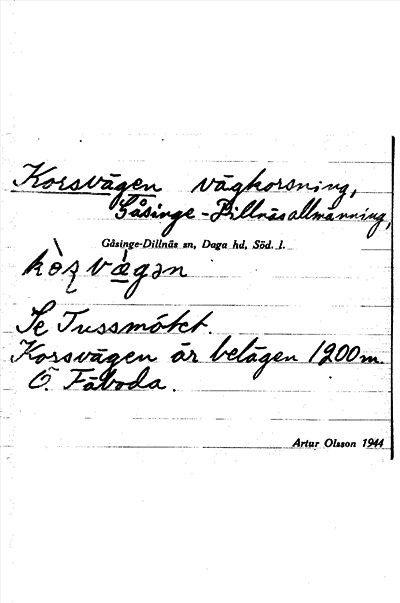 Korsvägen vägkorsning,
Gåsinge-Dillnäs allmänning,
Gåsinge-Dillnäs sn, Daga hd, Söd. l.
Se Tussmötet.
Korsvägen är belägen 1200 m.
Ö. Fäboda.
Artur Olsson 1944